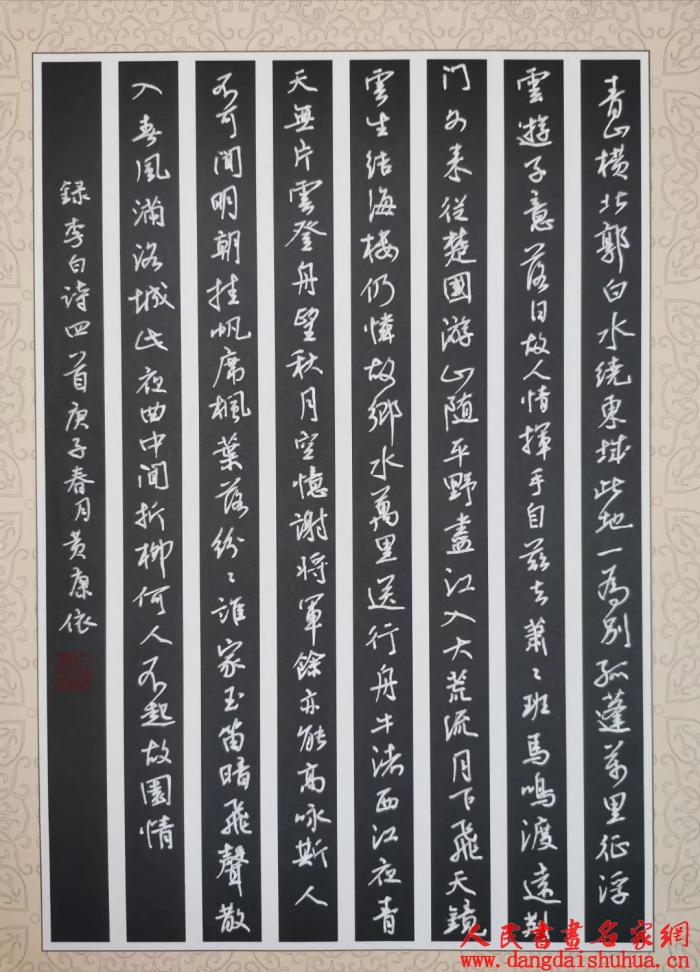 青山横北郭白水绕東城此地一為別孤蓬萬里征浮
雲遊子意落日故人情揮手自茲去蕭〻班馬鳴渡遠荆
门外来從楚國游山随平野盡江入大荒流月下飛天鏡
雲生结海楼仍憐故鄉水萬里送行舟牛渚西江夜青
天無片雲登舟望秋月空憶謝将軍餘亦能高咏斯人
不可聞明朝挂帆席楓葉落紛〻誰家玉笛暗飛聲散
入春風滿洛城此夜曲中聞折柳何人不起故園情
録李白诗四首庚子春月黄康依
人民書畫名家網
www.dangdaishuhua.com.cn